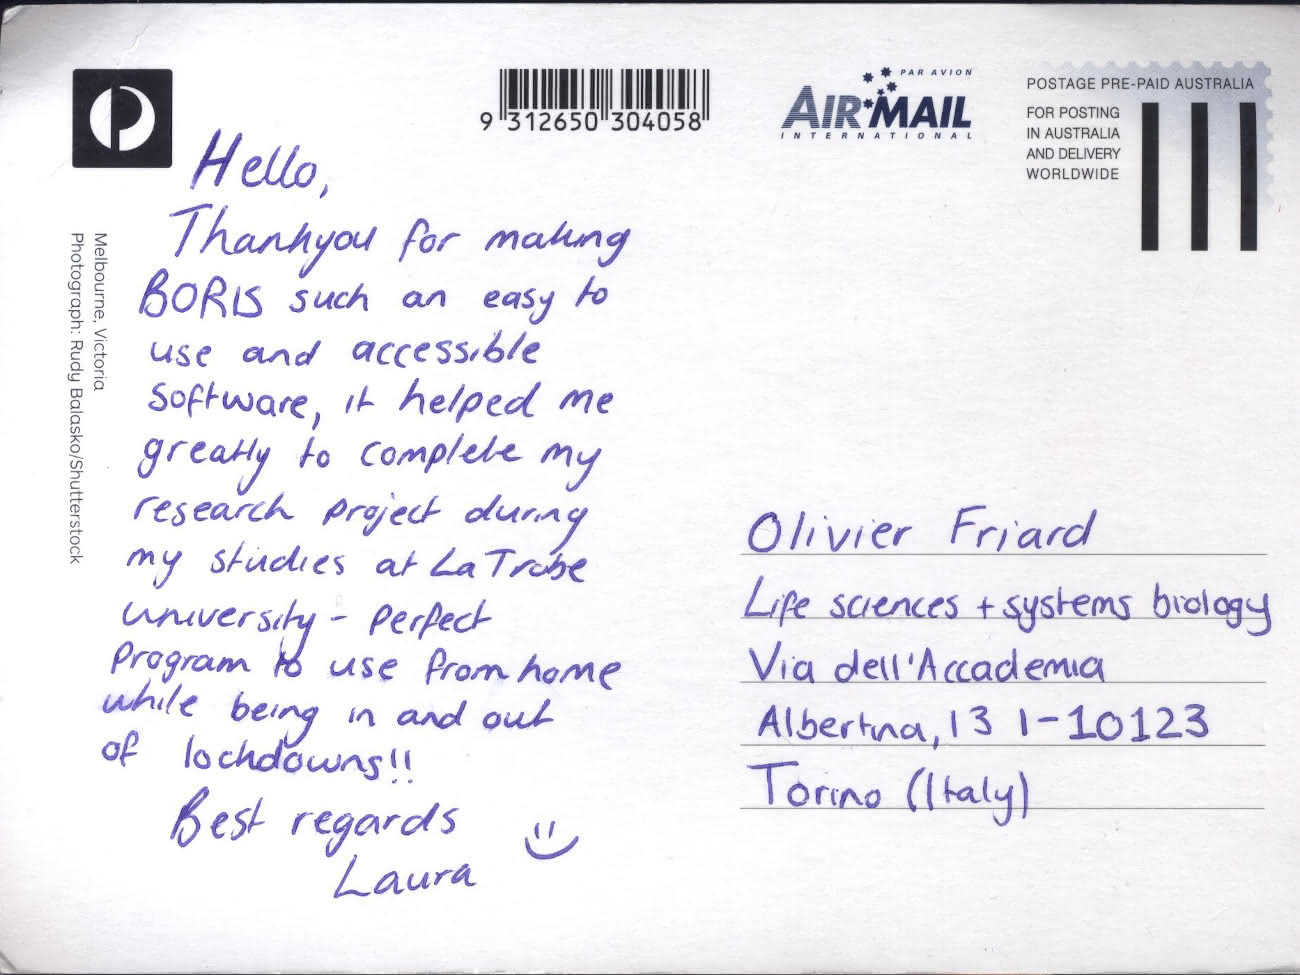 9 312650 304058
PAR AVION
AIR MAIL
INTERNATIONAL
POSTAGE PRE-PAID AUSTRALIA
FOR POSTING
IN AUSTRALIA
AND DELIVERY
WORLDWIDE
Melbourne, Victoria
Photograph: Rudy Balasko/Shutterstock
Hello,
Thankyou for making
BORIS such an easy to
use and accessible
software, it helped me
greatly to complete my
research project during
my studies at La Trobe
university - perfect
program to use from home
while being in and out
of lockdowns!!
Best regards
Laura
Olivier Friard
Life sciences + systems biology
Via dell'Accademia
Albertina, 13 I-10123
Torino (Italy)